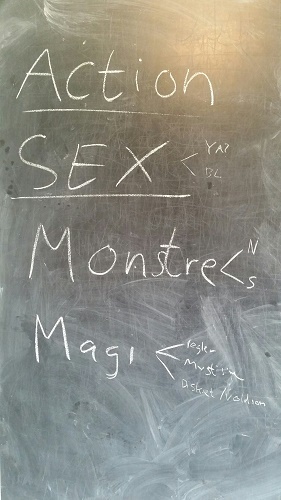 Action
SEX < YA?
BL
Monstre < N
S
Magi < regler
Mystik
Diskret / Voldsom